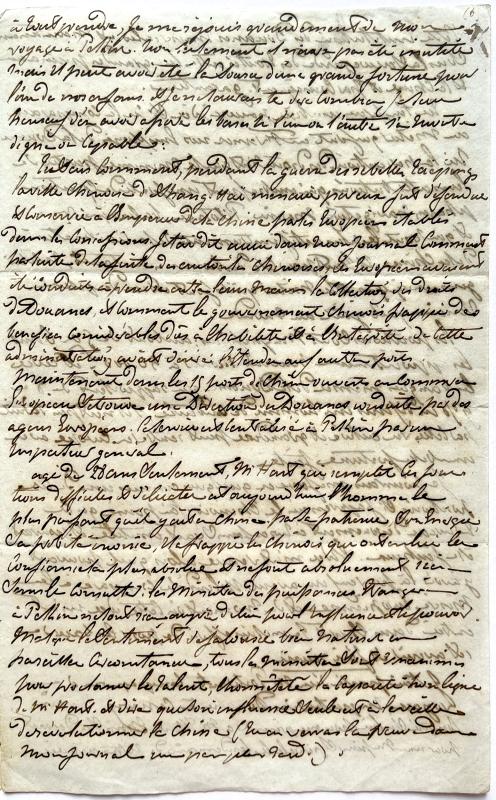 6
à tout prendre je me réjouis grandement de mon
voyage à Pékin. non seulement il n'aura pas été inutile
mais il peut avoir été la source d'une grande fortune pour
l'un de nos enfans s'il s'en trouvait de . je suis
heureux d'en avoir apporté les bases si l'un ou l'autre s'en montre
digne ou capable.
Tu sais comment, pendant la guerre des rebelles Taepings
la ville chinoise de Shang-Haï menacée par eux fut défendue
et conservée à l'Empereur de la Chine par les Européens établis
dans les concessions. Je t'ai dit aussi dans mon journal comment
par suite de la fuite des autorités chinoises, les Européens avaient
été conduits à prendre entre leurs mains la collection des droits
de Douanes, et comment le gouvernement chinois frappé des
bénéfices considérables dûs à l'habileté et à l'intégrité de cette
administration avait désiré l'étendre aux autres ports
maintenant dans les 15 ports de Chine ouverts au commerce
Européen se trouve une Direction des Douanes conduite par des
agens Européens. Le service est centralisé à Pékin par un
Inspecteur général.
agé de ans seulement, Mr Hart qui remplit ces fonc-
tions difficiles et délicates est aujourd'hui l'homme le
plus puissant qu'il y ait en Chine par la patience son énergie
sa probité inouie, il a frappé les Chinois qui ont en lui la
confiance la plus absolue et ne font absolument rien
sans le consulter. les Ministres des puissances Etrangères
à Pékin ne sont rien auprès de lui pour l'influence et le pouvoir
Malgré le sentiment de jalousie bien naturel en
pareille circonstance, tous les ministres sont unanimes
pour proclamer le talent, l'honnêteté la capacité hors ligne
de Mr Hart, et dire que son influence seule est à la veille
de révolutionner la Chine (Tu en verras la preuve dans
mon journal un peu plus tard).